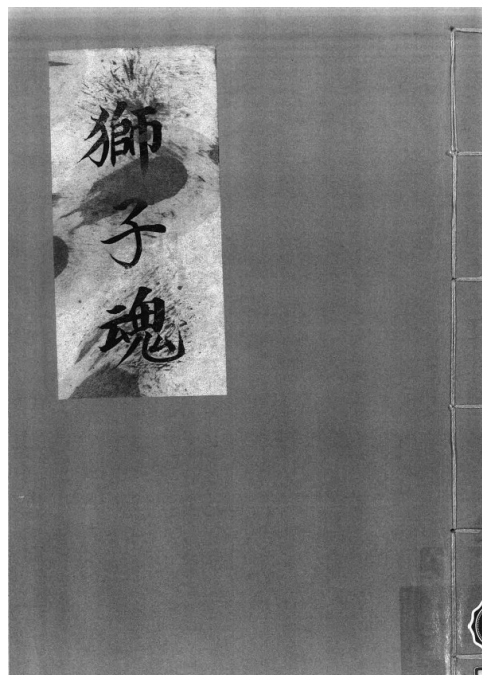 獅子魂